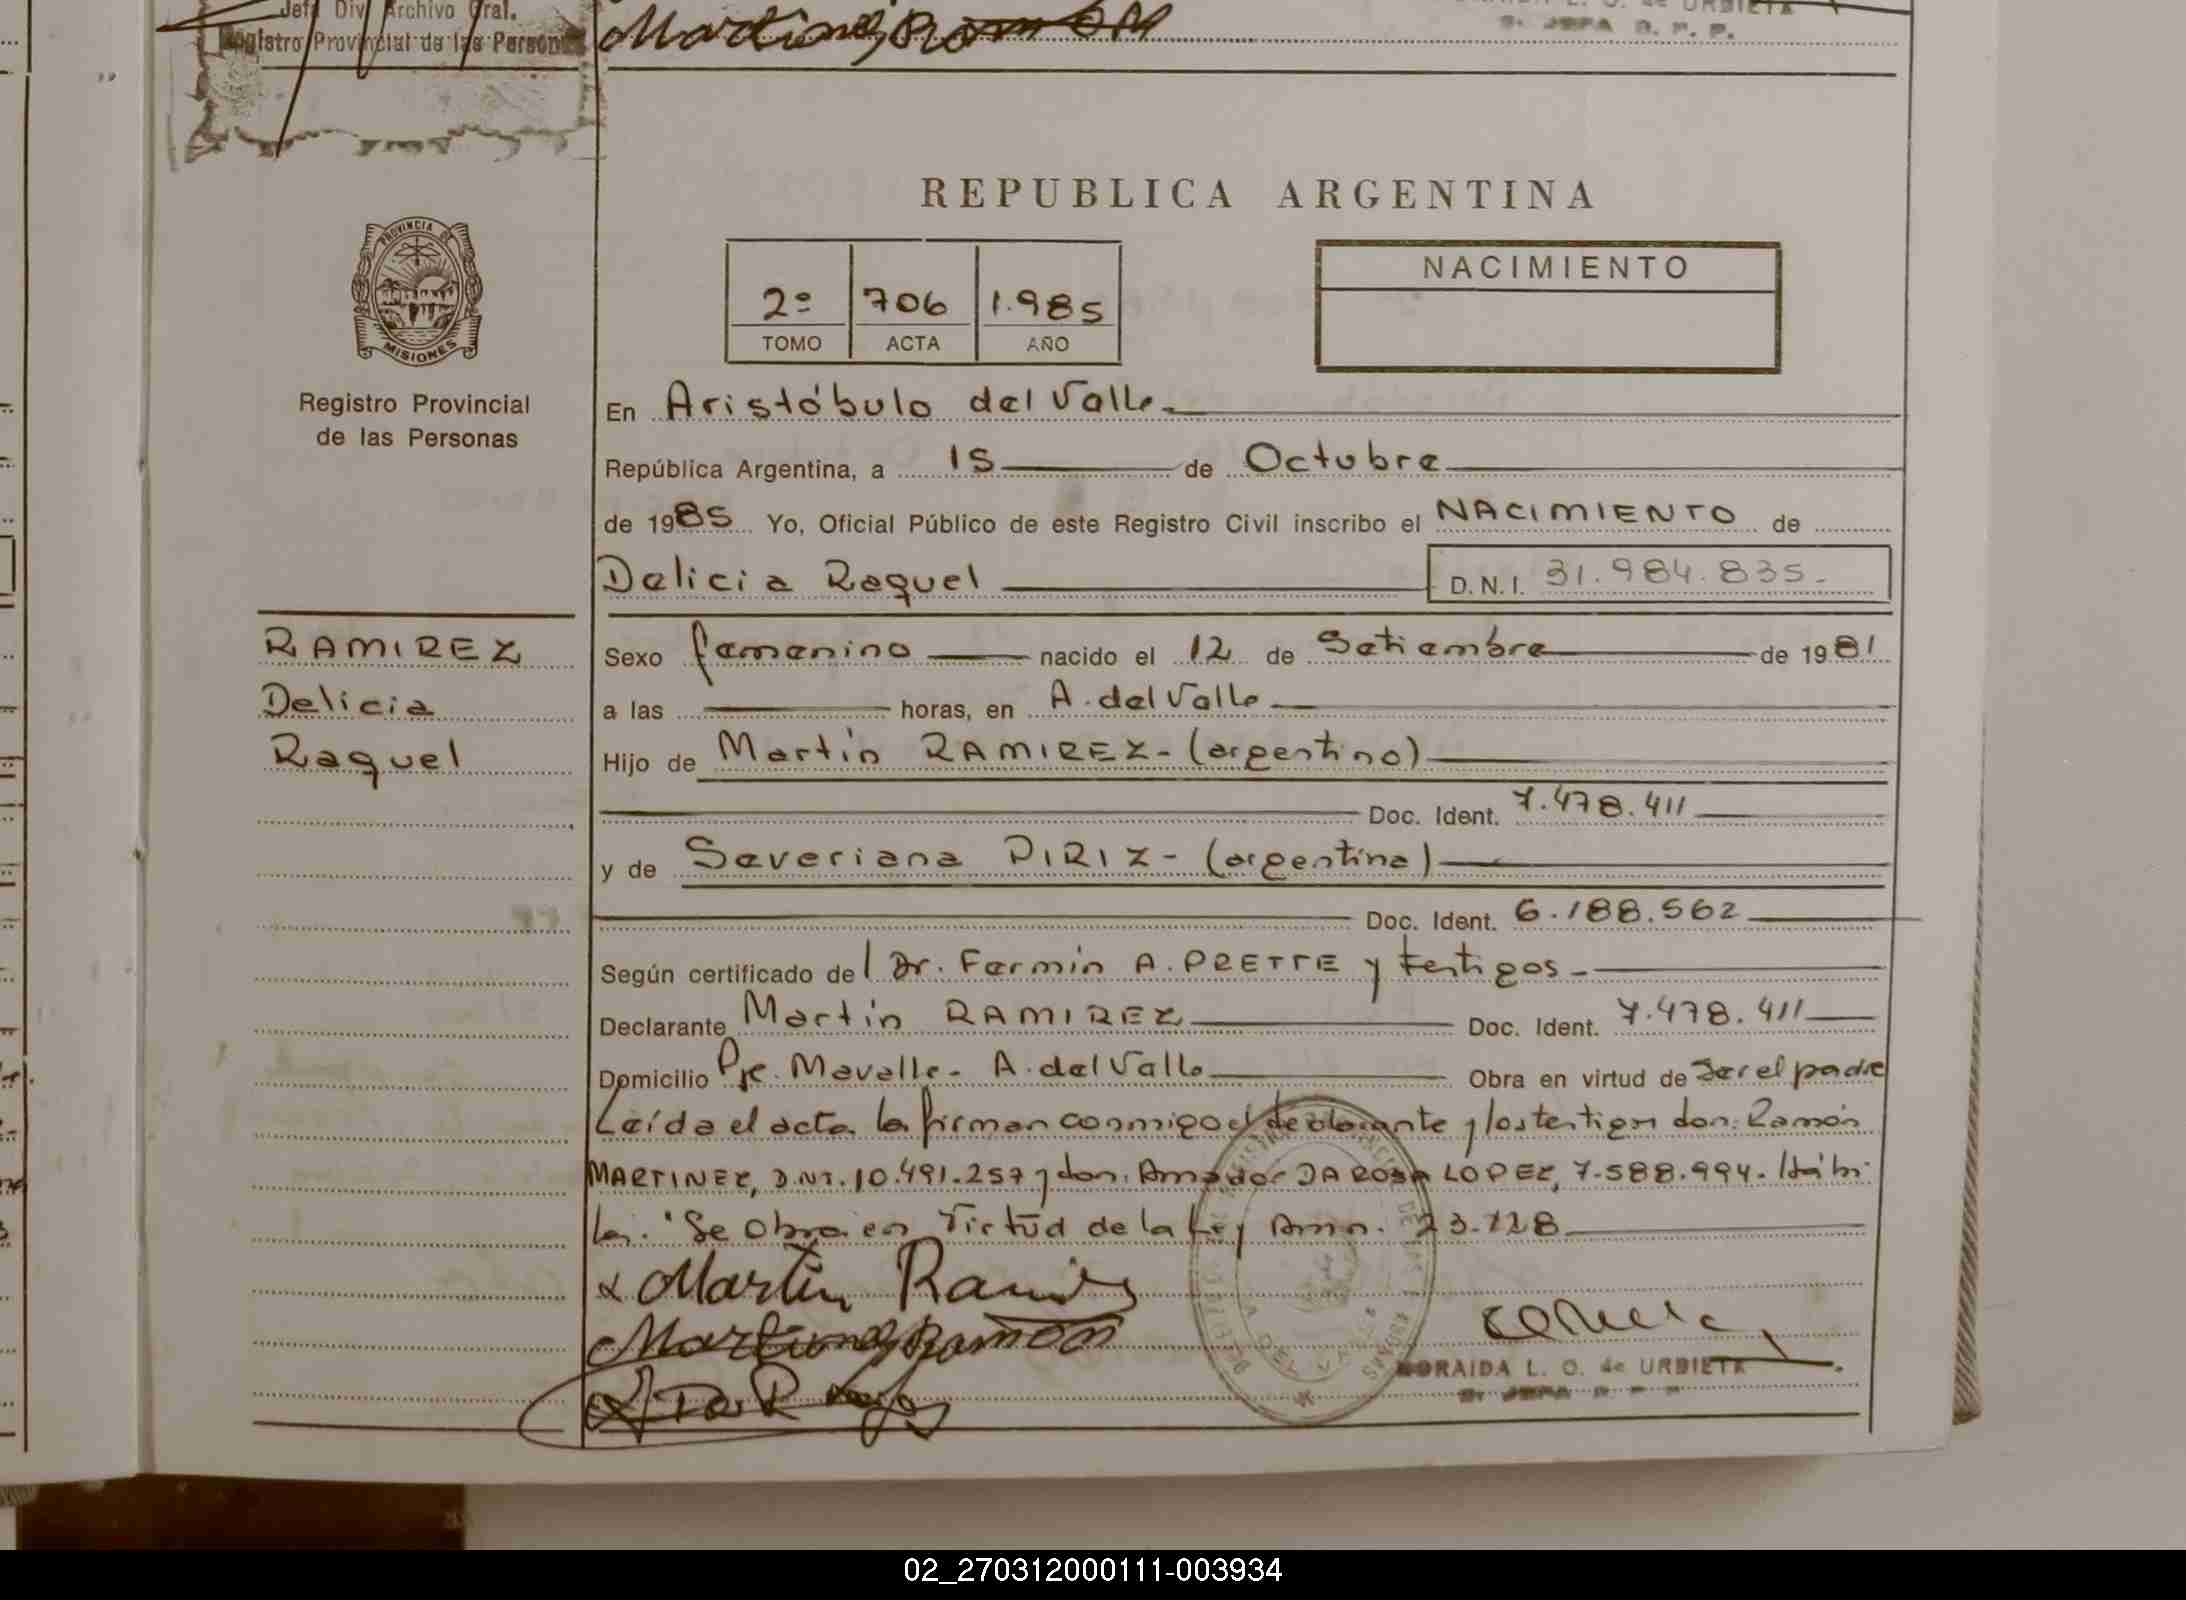 Jefa Div. Archivo Gral.
Registro Provincial de las Personas
Martinez Ramón
2. JEFA R. P. P.
REPUBLICA ARGENTINA
PROVINCIA DE
MISIONES
Registro Provincial
de las Personas
2º 706 1.985
TOMO ACTA AÑO
NACIMIENTO
En Aristóbulo del Valle.
República Argentina, a 15 de Octubre
de 1985 Yo, Oficial Público de este Registro Civil inscribo el NACIMIENTO de
Delicia Raquel D.N.I. 31.984.835.-
RAMIREZ
Delicia
Raquel
Sexo femenino nacido el 12 de Setiembre de 1981
a las horas, en A. del Valle
Hijo de Martín RAMIREZ - (argentino)
Doc. Ident. 7.478.411
y de Severiana PIRIZ - (argentina)
Doc. Ident. 6.188.562
Según certificado del Dr. Fermín A. PRETTE y testigos -
Declarante Martín RAMIREZ Doc. Ident. 7.478.411
Domicilio Pje. Mavalle - A. del Valle Obra en virtud de Ser el padre
Leída el acta la firman conmigo el declarante y los testigos don: Ramón
MARTINEZ, D.NI. 10.491.257 y don: Amador DA ROSA LOPEZ, 7.588.994.
Se obra en Virtud de la Ley 23.128
Martín Ramirez
Martinez Ramón
Da R
NORAIDA L. O. de URBIETA
2. JEFA R. P. P.
02_270312000111-003934